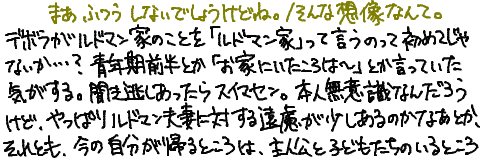 まぁ ふつう しないでしょうけどね。/そんな想像なんて。
デボラがルドマン家のことを「ルドマン家」って言うのって初めてじゃ
ないか…？青年期前半とか「お家にいたころは〜」とか言っていた
気がする。聞き逃しあったらスイマセン。本人無意識なんだろう
けど、やっぱりルドマン夫妻に対する遠慮が少しあるのかなぁとか、
それとも、今の自分が帰るところは、主人公と子どもたちのいるところ